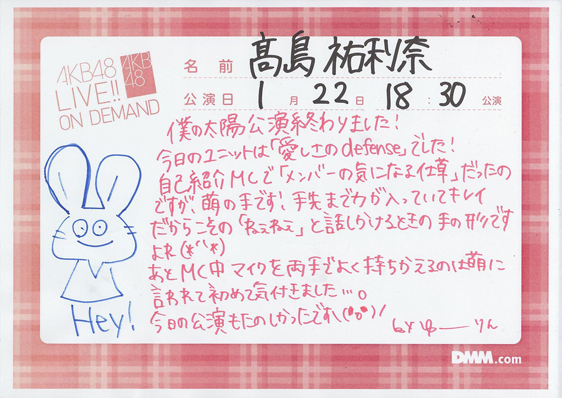 AKB48
LIVE!!
ON DEMAND
AKB
48
名前 髙島 祐利奈
公演日 1月22日 18:30公演
僕の太陽公演終わりました!
今日のユニットは「愛しさのdefense」でした!
自己紹介MCで「メンバーの気になる仕草」だったの
ですが、萌の手です!手先まで力が入っていてキレイ
だからこその「ねぇねぇ」と話しかけるときの手の形です
よね(*´`*)
あとMC中マイクを両手でよく持ちかえるのは萌に
言われて初めて気付きました…。
今日の公演もたのしかったです\(^o^)/
by ゆーりん
Hey!
DMM.com